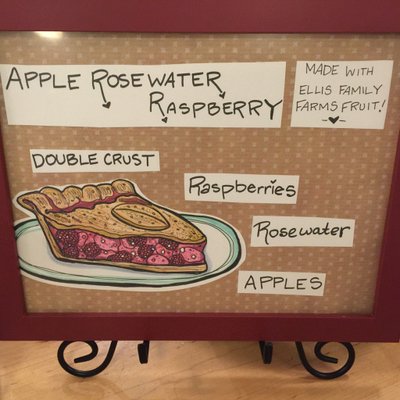 APPLE ROSEWATER
RASPBERRY
MADE WITH
ELLIS FAMILY
FARMS FRUIT!
DOUBLE CRUST
Raspberries
Rosewater
APPLES